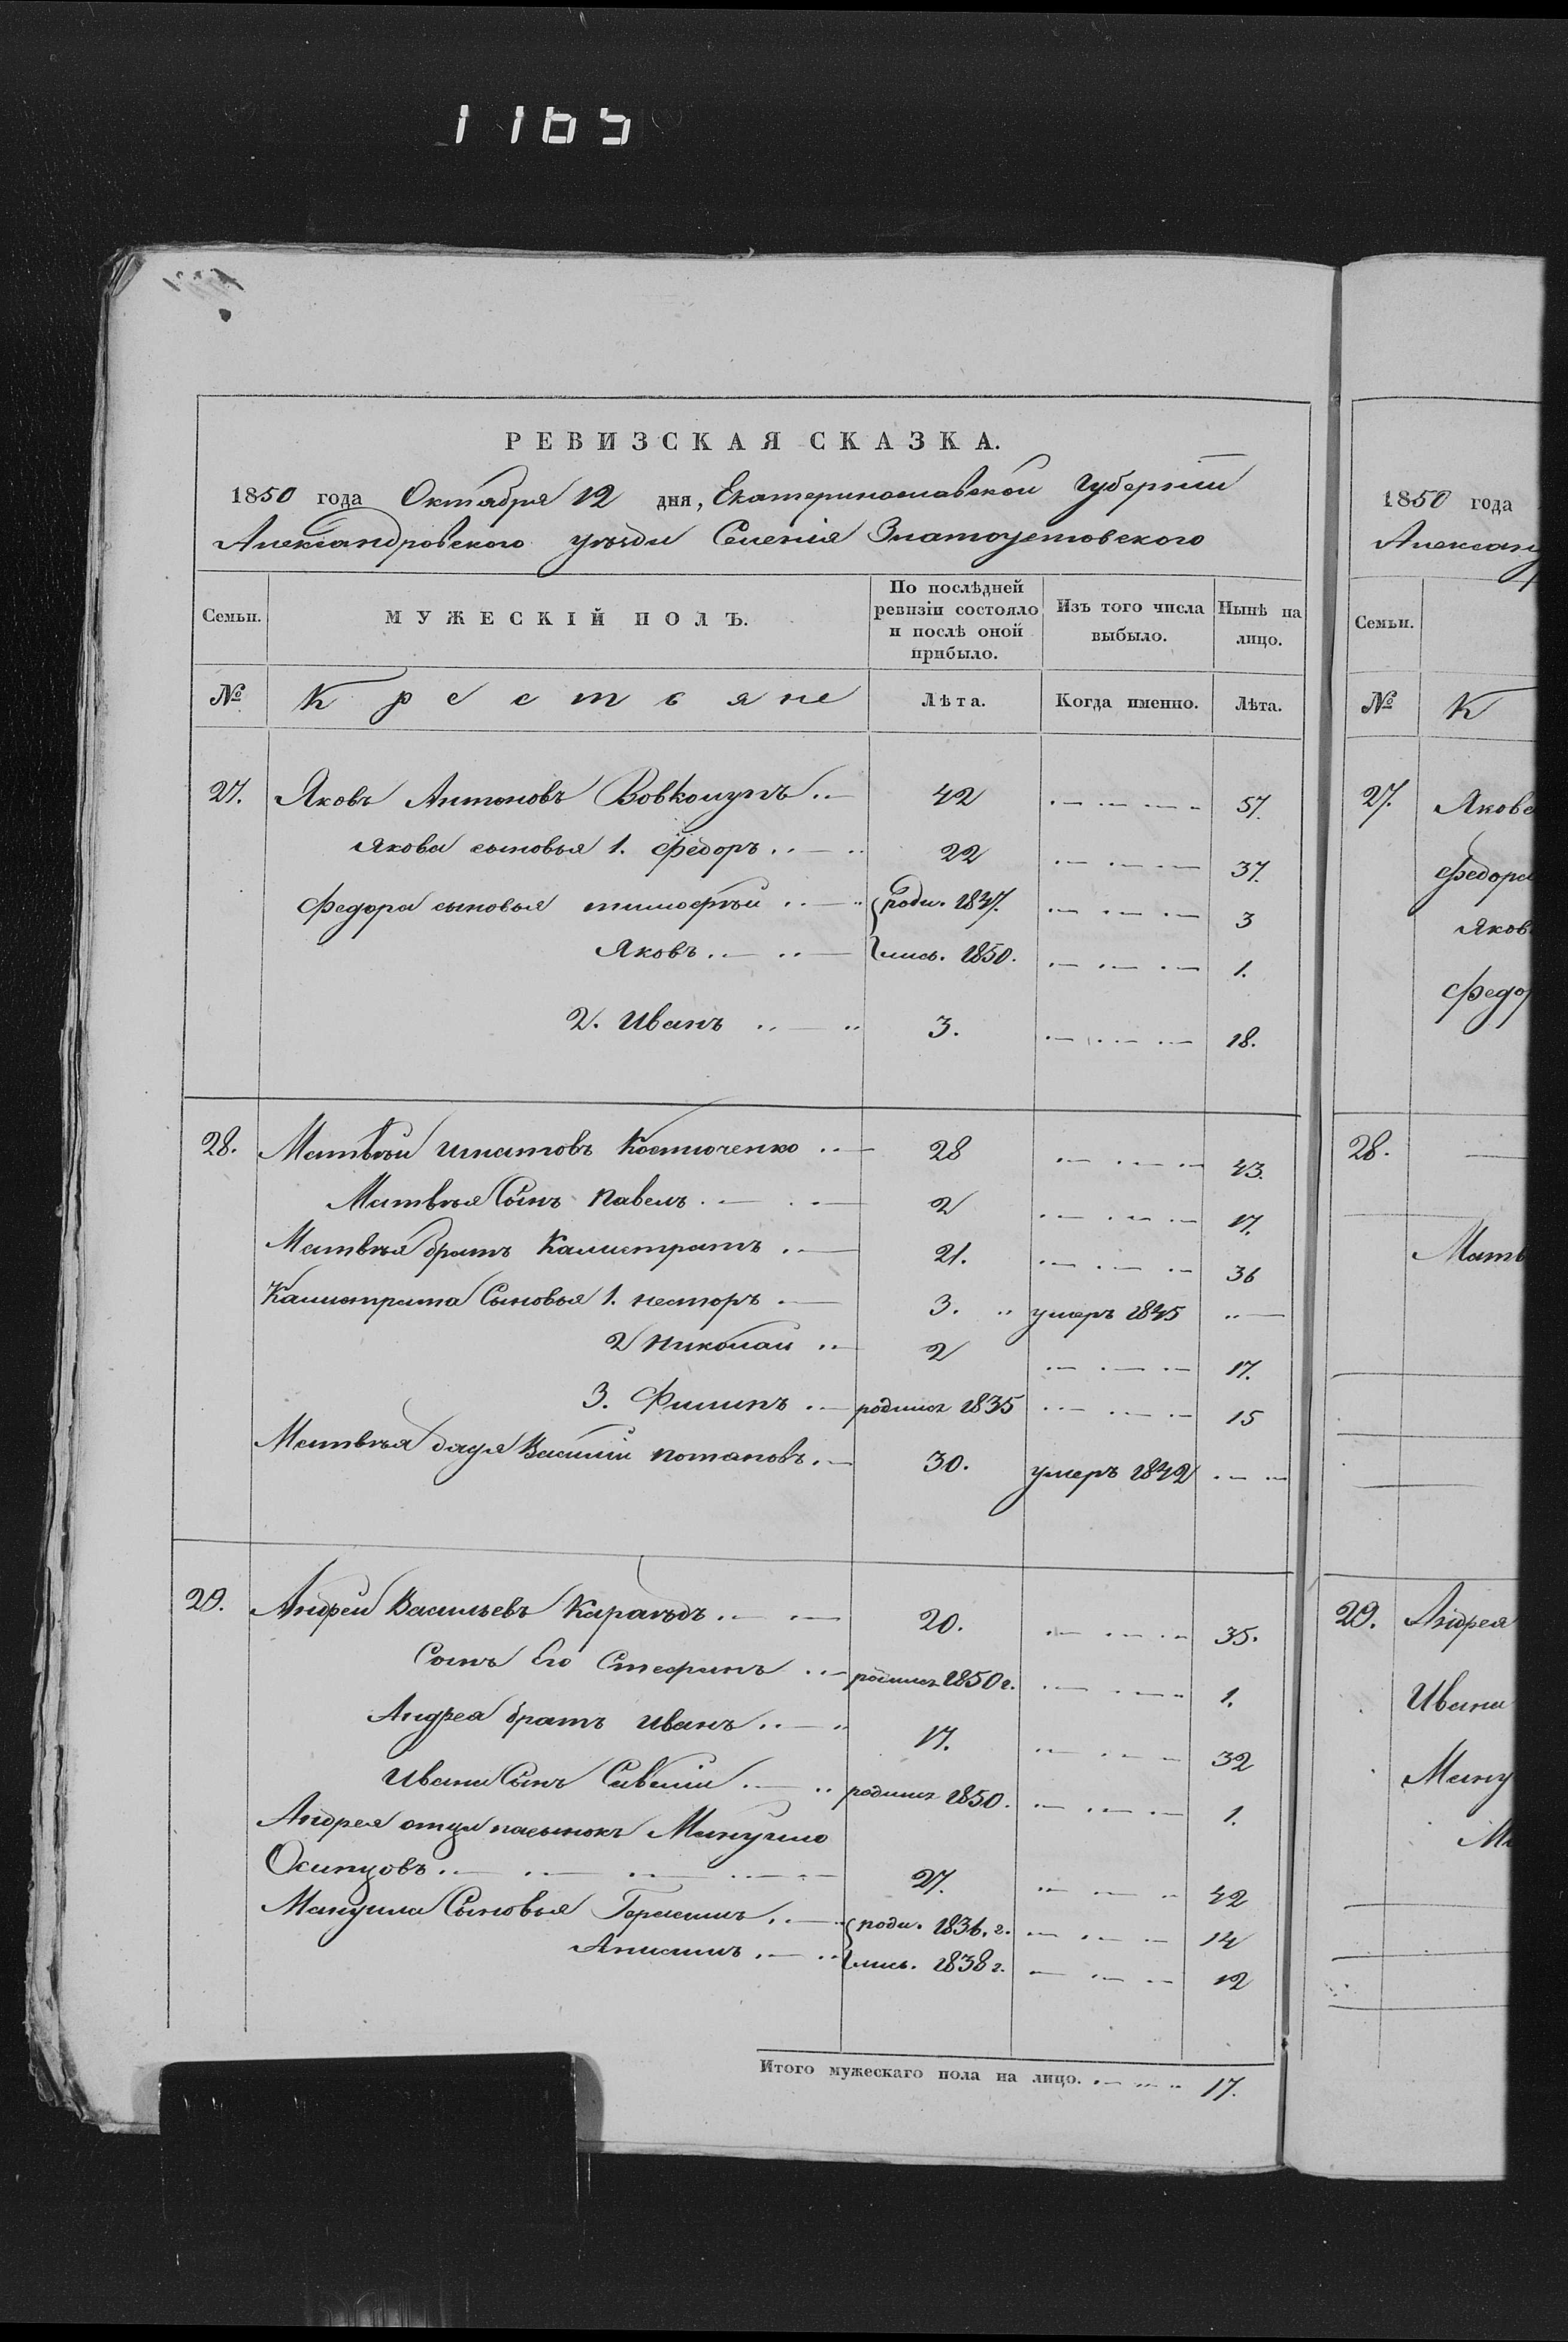 1165
РЕВИЗСКАЯ СКАЗКА.
1850 года Октября 12 дня, Екатеринославской Губерніи
Александровскаго уѣзда Селенія Златоустовского
Семьи. МУЖЕСКІЙ ПОЛЪ. По послѣдней ревизіи состояло и послѣ оной прибыло. Изъ того числа выбыло. Нынѣ на лицо.
№ Крестьяне Лѣта. Когда именно. Лѣта.
27. Яковъ Антоновъ Вовкотупъ 42 57.
Якова сыновья 1. Федоръ 22 37.
Федора сыновья тимофѣй роди. 1847. 3
Яковъ лись. 1850. 1.
2. Иванъ 3. 18.
28. Матвѣй Игнатовъ Костюченко 28 43.
Матвѣя Сынъ Павелъ 2 17.
Матвѣя братъ Калистратъ 21. 36
Калистрата Сыновья 1. нестеръ 3. умеръ 1845
2 николай 2 17.
3. Филипъ родился 1835 15
Матвѣя дядя Василій потаповъ 30. умеръ 1842
29. Андрей Васильевъ 20. 35.
Сынъ Его Стефанъ родился 1850 г. 1.
Андрея братъ иванъ 17. 32
Ивана Сынъ Савелій родился 1850. 1.
Андрея отца пасынокъ Мануйло
Осиповъ 27. 42
Мануила Сыновья Герасимъ роди. 1836. г. 14
Анисимъ лись. 1838 г. 12
Итого мужескаго пола на лицо. 17.
1850 года
Александ
Семьи.
№ К
27. Якова
Федора
Яков
Федор
28.
Матв
29. Андрея
Ивана
Ману